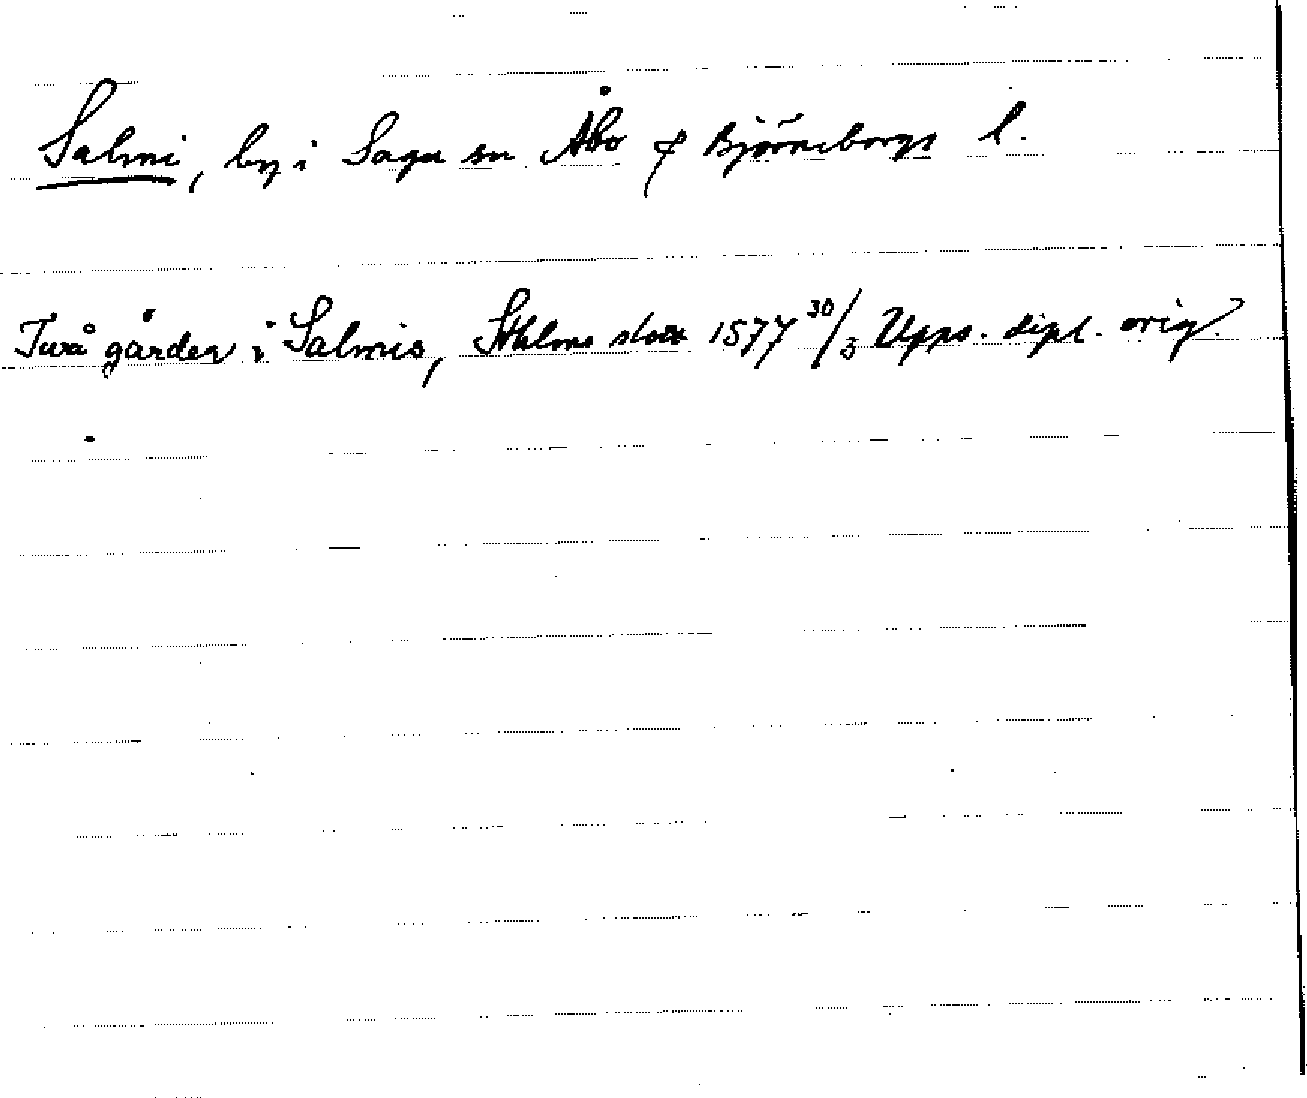 Salmi, by i Sagu sn Åbo & Björneborgs l.
Twå gårder i Salmis, Sthlms slott 1577 30/3 Upps. dipl. orig.